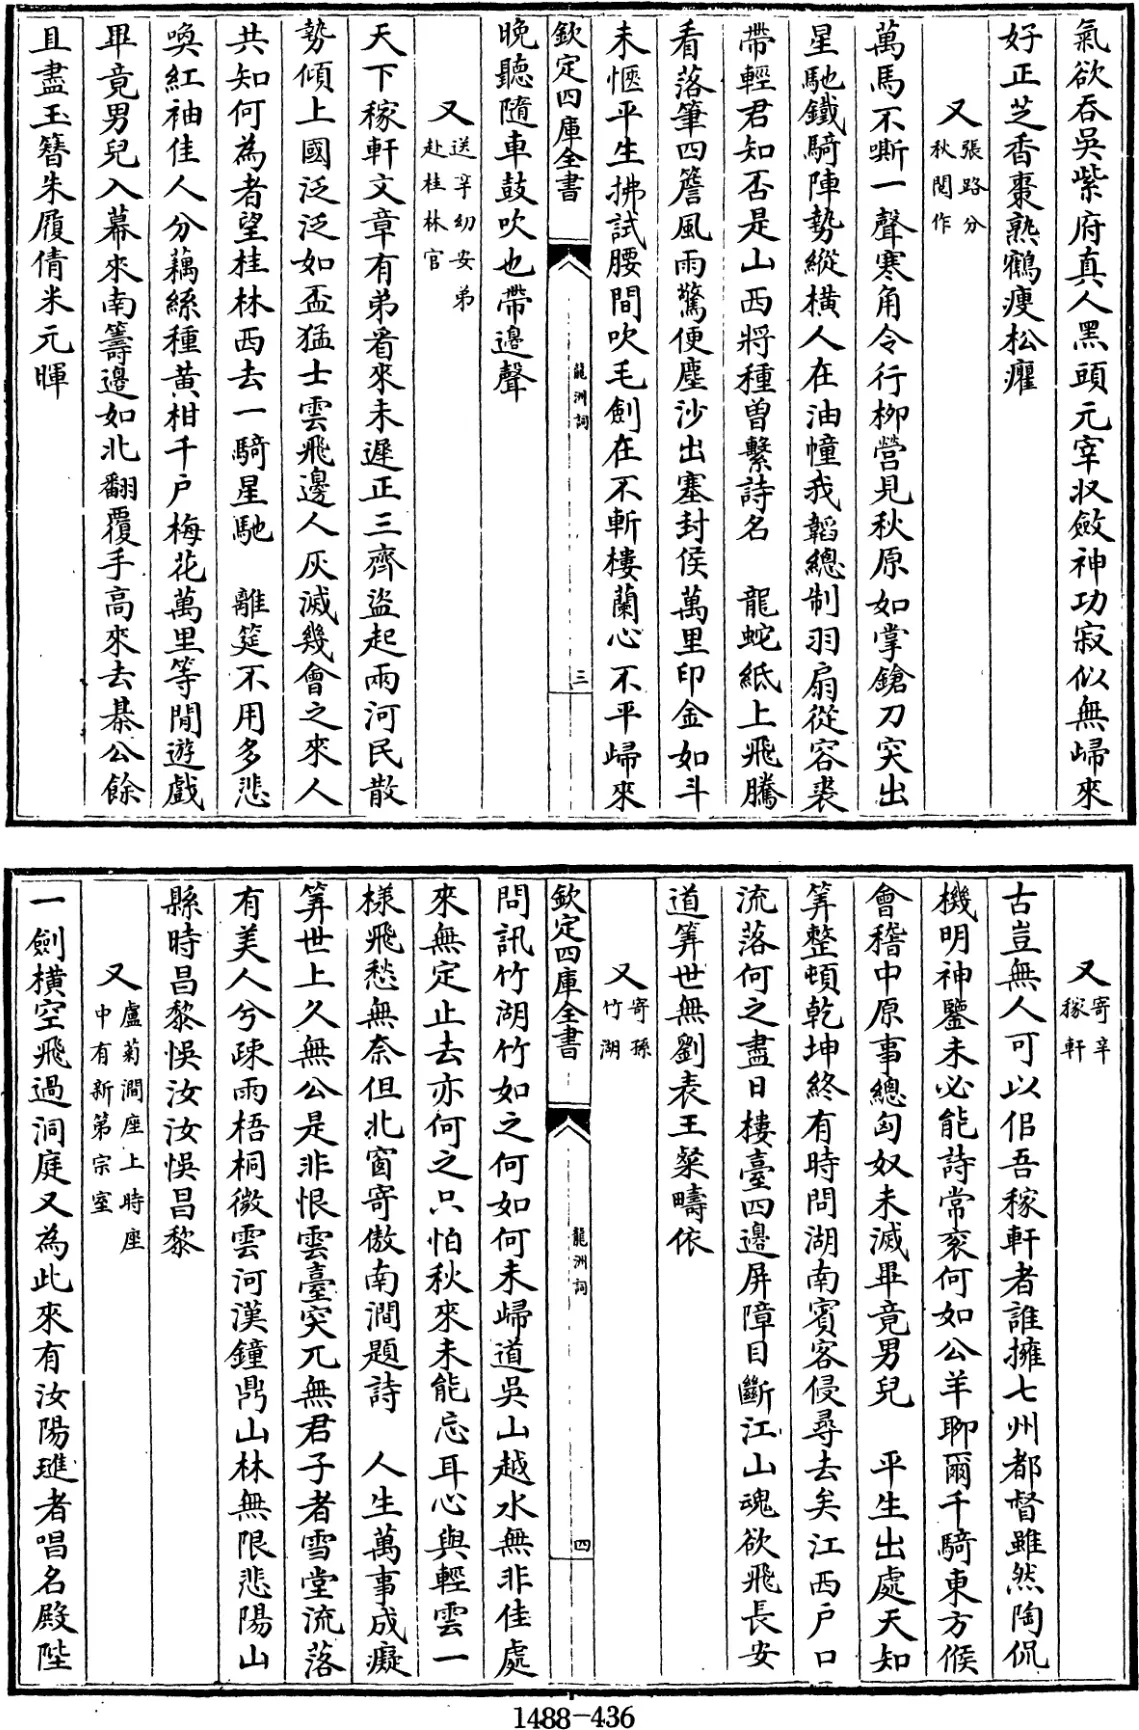 氣欲吞吳紫府真人黑頭元宰収斂神功寂似無歸來
好正芝香棗熟鶴瘦松癯
又張路分秋閱作
萬馬不嘶一聲寒角令行柳營見秋原如掌鎗刀突出
星馳鐵騎陣勢縱橫人在油幢我韜總制羽扇從容裘
帶輕君知否是山西將種曽繫詩名　龍蛇紙上飛騰
看落筆四簷風雨驚便塵沙出塞封侯萬里印金如斗
未愜平生拂試腰間吹毛劍在不斬樓蘭心不平歸來
欽定四庫全書
龍洲詞
三
晚聽隨車鼓吹也帶邊聲
又送辛幼安弟赴桂林官
天下稼軒文章有弟看來未遲正三齊盜起兩河民散
勢傾上國泛泛如盃猛士雲飛邊人灰滅幾會之來人
共知何為者望桂林西去一騎星馳　離筵不用多悲
喚紅袖佳人分藕絲種黃柑千戶梅花萬里等閒遊戲
畢竟男兒入幕來南籌邊如北翻覆手高來去棊公餘
且盡玉簪朱履倩米元暉
又寄辛稼軒
古豈無人可以佀吾稼軒者誰擁七州都督雖然陶侃
機明神鑒未必能詩常袞何如公羊聊爾千騎東方候
會稽中原事總匈奴未滅畢竟男兒　平生出處天知
筭整頓乾坤終有時問湖南賓客侵尋去矣江西戶口
流落何之盡日樓臺四邊屏障目斷江山魂欲飛長安
道筭世無劉表王粲疇依
又寄孫竹湖
欽定四庫全書
龍洲詞
四
問訊竹湖竹如之何如何未歸道吳山越水無非佳處
來無定止去亦何之只怕秋來未能忘耳心與輕雲一
樣飛愁無奈但北窗寄傲南澗題詩　人生萬事成癡
筭世上久無公是非恨雲臺突兀無君子者雪堂流落
有美人兮疎雨梧桐微雲河漢鐘鼎山林無限悲陽山
縣時昌黎悞汝汝悞昌黎
又盧菊澗座上時座中有新第宗室
一劍橫空飛過洞庭又為此來有汝陽璡者唱名殿陛
1488-436